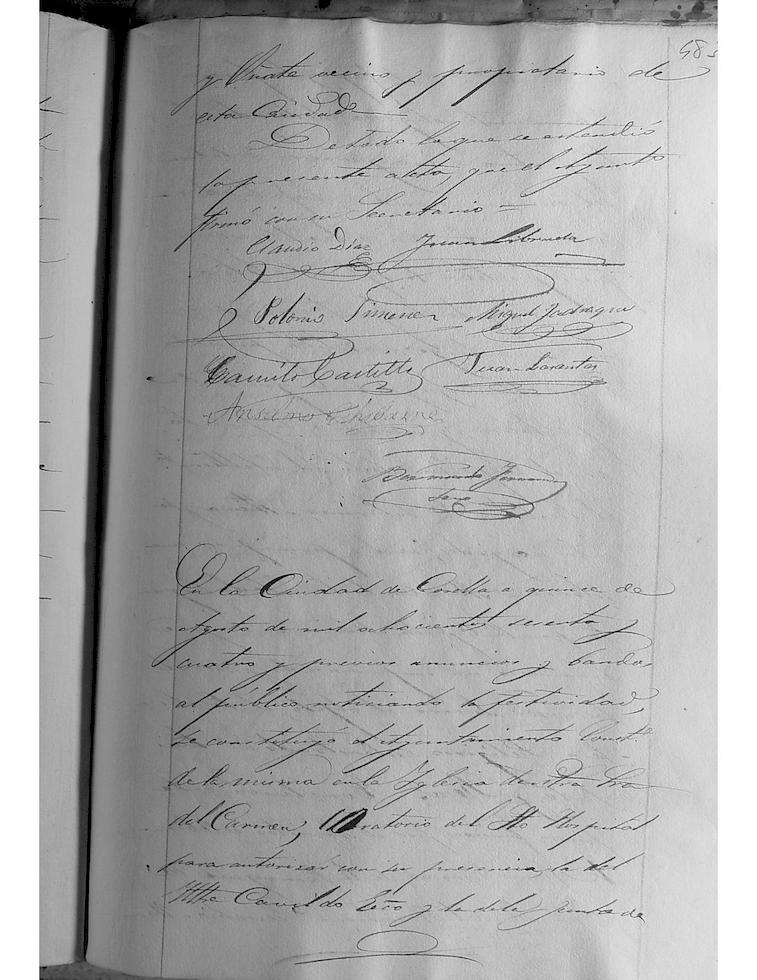 y Oñate vecino y propietario de
esta Ciudad
De todo lo que se estendió
la presente acta, que el Ayunto
firmó con su Secretario =
Claudio Diaz Juan
Polonio Jimenez Miguel
Camilo Castillo Juan
Anselmo
Bermundo
En la Ciudad de Corella a quince de
Agosto de mil ochocientos sesenta y
cuatro y previos anuncios y bandos
al público noticiando la festividad,
se constituyó el Ayuntamiento Constl.
de la misma en la Yglesia de Ntra Sra
del Carmen, Oratorio del Sto Hospital
para autorizar con su presencia, la del
Ittre Cavildo Ecco y la de la Junta de